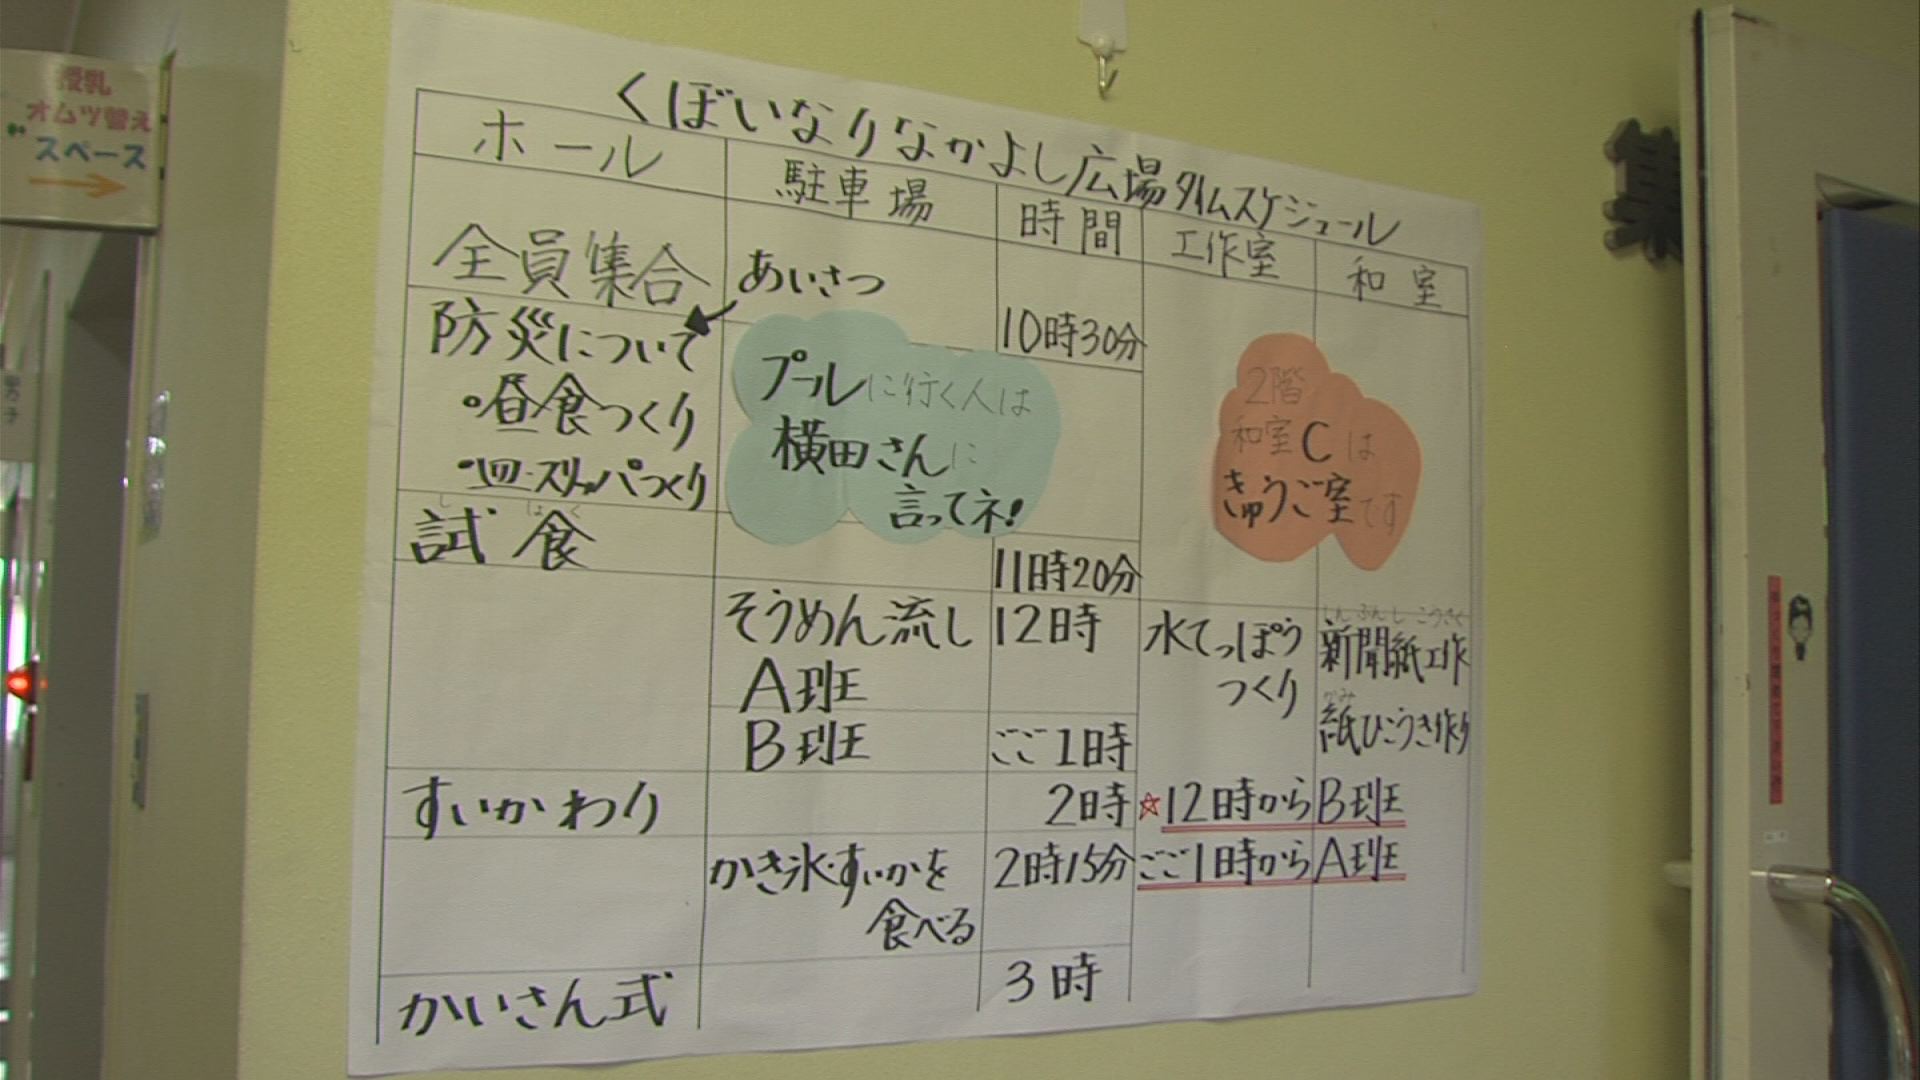 授乳
オムツ替え
スペース
くぼいなりなかよし広場タイムスケジュール
ホール
駐車場
時間
工作室
和室
全員集合
あいさつ
10時30分
防災について
・昼食つくり
・皿・スリッパつくり
プールに行く人は
横田さんに
言ってネ!
2階
和室Cは
きゅうご室です
ししょく
試食
11時20分
そうめん流し
12時
水てっぽう
つくり
しんぶんしこうさく
新聞紙工作
A班
かみ
紙ひこうき作り
B班
ごご1時
すいかわり
2時
☆12時から
B班
かき氷・すいかを
食べる
2時15分
ごご1時から
A班
かいさん式
3時
集